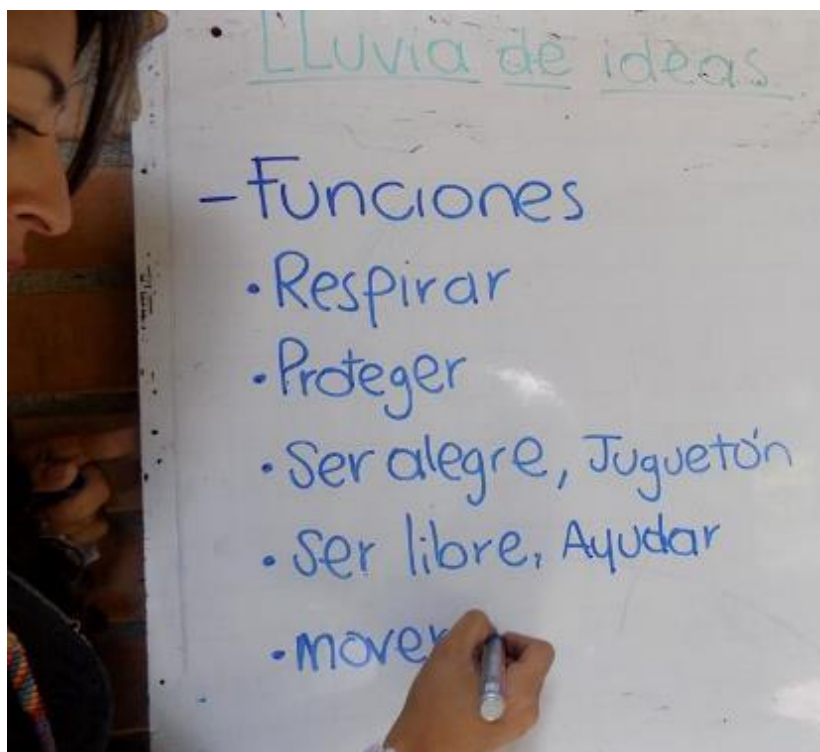 LLuvia de ideas
- Funciones
• Respirar
• Proteger
• Ser alegre, Juguetón
• Ser libre, Ayudar
• mover